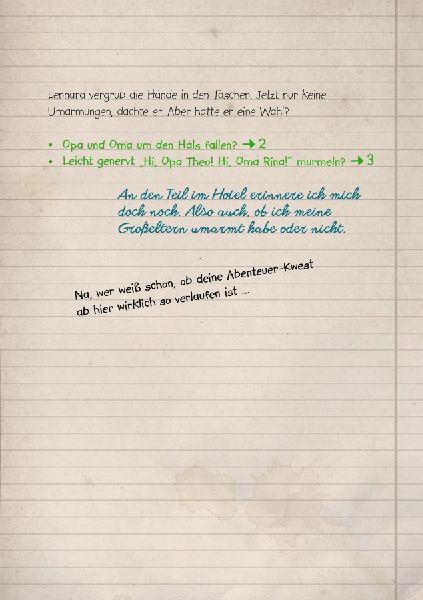 Lennard vergrub die Hände in den Taschen. Jetzt nur keine
Umarmungen, dachte er. Aber hatte er eine Wahl?
• Opa und Oma um den Hals fallen? → 2
• Leicht genervt „Hi, Opa Theo! Hi, Oma Rina!“ murmeln? → 3
An den Teil im Hotel erinnere ich mich
doch noch. Also auch, ob ich meine
Großeltern umarmt habe oder nicht.
Na, wer weiß schon, ob deine Abenteuer-Kwest
ab hier wirklich so verlaufen ist ...